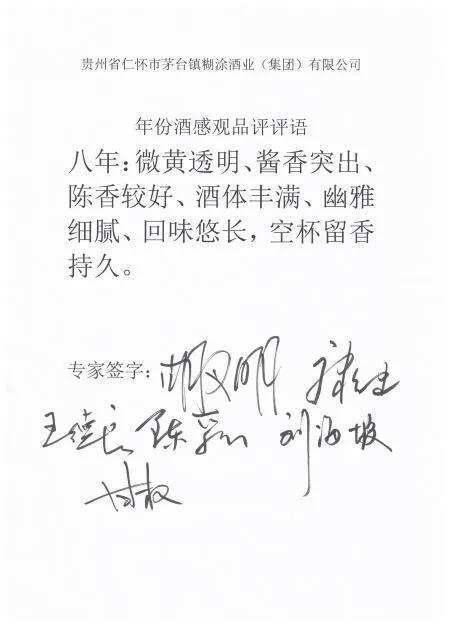 贵州省仁怀市茅台镇糊涂酒业（集团）有限公司
年份酒感观品评评语
八年：微黄透明、酱香突出、
陈香较好、酒体丰满、幽雅
细腻、回味悠长，空杯留香
持久。
专家签字：胡义明
王德良 陈 刘海坡